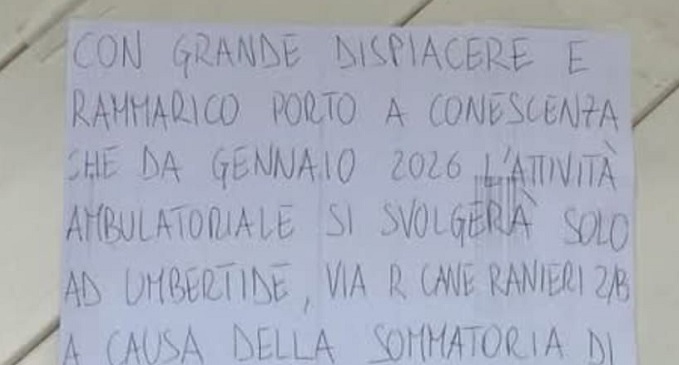 CON GRANDE DISPIACERE E
RAMMARICO PORTO A CONESCENZA
CHE DA GENNAIO 2026 L'ATTIVITÀ
AMBULATORIALE SI SVOLGERÀ SOLO
AD UMBERTIDE, VIA R CANE RANIERI 2/B
A CAUSA DELLA SOMMATORIA DI